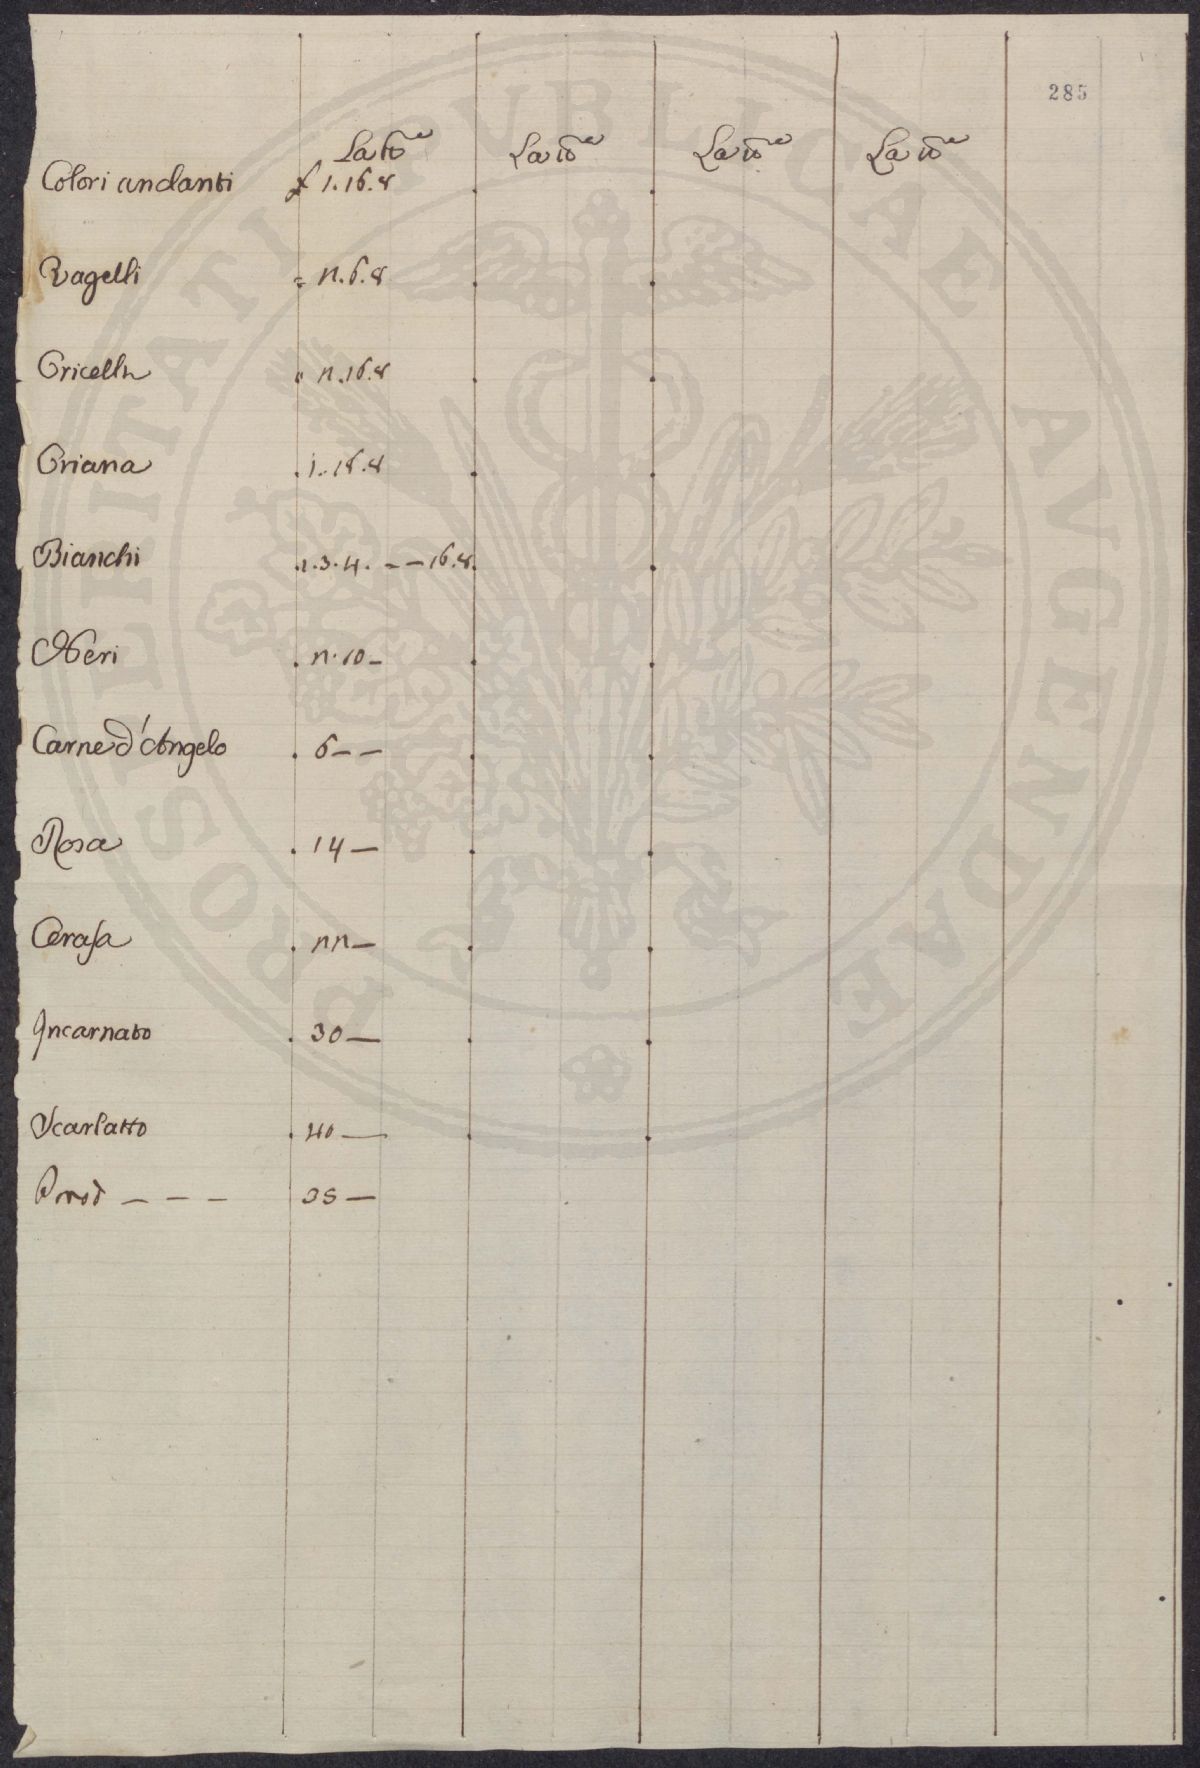 285
La lb.a La lb.a La lb.a La lb.a
Colori andanti £ 1.16.8
Vagelli = n.6.8
Oricelli n.16.8
Oriana . 1.16.8
Bianchi .1.3.4. — — 16.8.
Neri . n.10 —
Carne d'Angelo . 6 — —
Rosa . 14 —
Cerasa . nn —
Incarnato . 30 —
Scarlatto . 40 —
— — — 35 —
PROSPERITATI PUBLICAE AVGENDAE